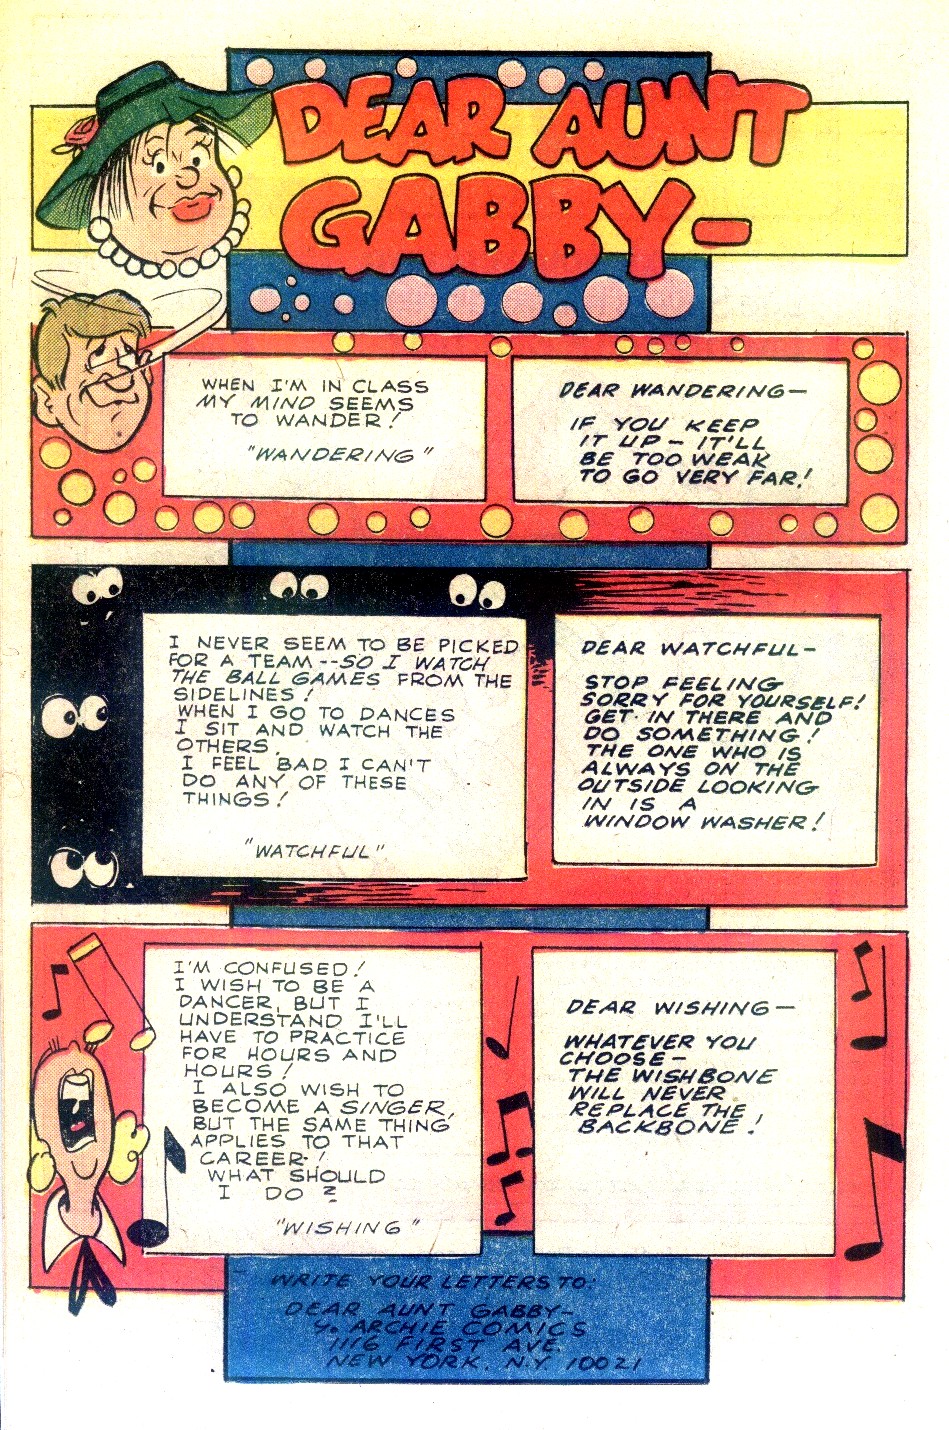 DEAR AUNT
GABBY-
WHEN I'M IN CLASS
MY MIND SEEMS
TO WANDER!
"WANDERING"
DEAR WANDERING-
IF YOU KEEP
IT UP - IT'LL
BE TOO WEAK
TO GO VERY FAR!
I NEVER SEEM TO BE PICKED
FOR A TEAM--SO I WATCH
THE BALL GAMES FROM THE
SIDELINES!
WHEN I GO TO DANCES
I SIT AND WATCH THE
OTHERS.
I FEEL BAD I CAN'T
DO ANY OF THESE
THINGS!
"WATCHFUL"
DEAR WATCHFUL-
STOP FEELING
SORRY FOR YOURSELF!
GET IN THERE AND
DO SOMETHING!
THE ONE WHO IS
ALWAYS ON THE
OUTSIDE LOOKING
IN IS A
WINDOW WASHER!
I'M CONFUSED!
I WISH TO BE A
DANCER, BUT I
UNDERSTAND I'LL
HAVE TO PRACTICE
FOR HOURS AND
HOURS!
I ALSO WISH TO
BECOME A SINGER,
BUT THE SAME THING
APPLIES TO THAT
CAREER!
WHAT SHOULD
I DO?
"WISHING"
DEAR WISHING-
WHATEVER YOU
CHOOSE-
THE WISHBONE
WILL NEVER
REPLACE THE
BACKBONE!
WRITE YOUR LETTERS TO:
DEAR AUNT GABBY-
% ARCHIE COMICS
1116 FIRST AVE.
NEW YORK, N.Y. 10021